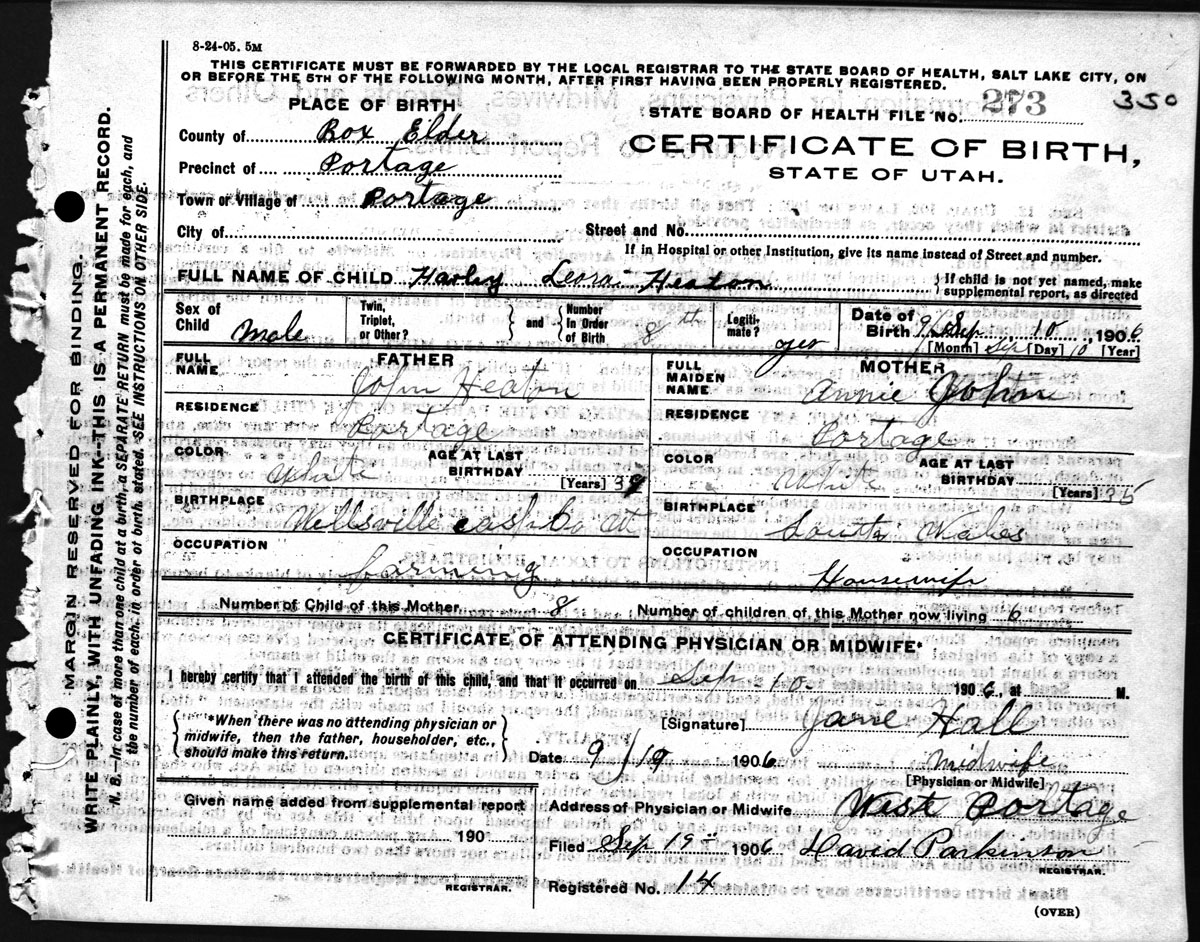 8-24-05. 5M
THIS CERTIFICATE MUST BE FORWARDED BY THE LOCAL REGISTRAR TO THE STATE BOARD OF HEALTH, SALT LAKE CITY, ON
OR BEFORE THE 5TH OF THE FOLLOWING MONTH, AFTER FIRST HAVING BEEN PROPERLY REGISTERED.
350
PLACE OF BIRTH
STATE BOARD OF HEALTH FILE No. 273
County of Box Elder
CERTIFICATE OF BIRTH,
Precinct of Portage
STATE OF UTAH.
Town or Village of Portage
City of
Street and No.
If in Hospital or other Institution, give its name instead of Street and number.
FULL NAME OF CHILD Harley Heaton
{If child is not yet named, make supplemental report, as directed
Sex of Child Male
Twin, Triplet, or Other? } and { Number In Order of Birth 8th
Legitimate? yes
Date of Birth Sep 10, 1906
[Month] Sep [Day] 10 [Year]
FATHER
FULL NAME John Heaton
RESIDENCE Portage
COLOR White
AGE AT LAST BIRTHDAY [Years]
BIRTHPLACE Wellsville cash Co Ut
OCCUPATION farming
MOTHER
FULL MAIDEN NAME Annie
RESIDENCE Portage
COLOR White
AGE AT LAST BIRTHDAY [Years] 35
BIRTHPLACE South Wales
OCCUPATION Housewife
Number of Child of this Mother 8 Number of children of this Mother now living 6
CERTIFICATE OF ATTENDING PHYSICIAN OR MIDWIFE*
I hereby certify that I attended the birth of this child, and that it occurred on Sep. 10 1906, at M.
{*When there was no attending physician or midwife, then the father, householder, etc., should make this return.}
[Signature] Jane Hall
Date 9/19 1906
Midwife
[Physician or Midwife]
Given name added from supplemental report
190
REGISTRAR.
Address of Physician or Midwife West Portage
Filed Sep 19 1906 David Parkinson
REGISTRAR.
Registered No. 14
(OVER)
MARGIN RESERVED FOR BINDING.
WRITE PLAINLY, WITH UNFADING INK—THIS IS A PERMANENT RECORD.
N. B.—In case of more than one child at a birth, a SEPARATE RETURN must be made for each, and
the number of each, in order of birth, stated. SEE INSTRUCTIONS ON OTHER SIDE.